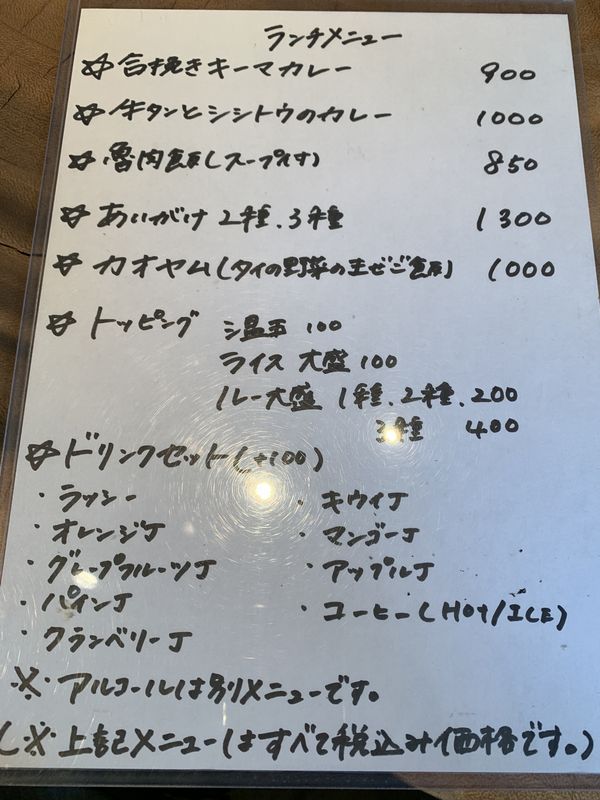 ランチメニュー
☆合挽きキーマカレー 900
☆牛タンとシシトウのカレー 1000
☆魯肉飯(スープ付) 850
☆あいがけ 2種、3種 1300
☆カオヤム(タイの野菜のまぜご飯) 1000
☆トッピング 温玉 100
ライス 大盛 100
ルー大盛 1種、2種、200
3種 400
☆ドリンクセット(+100)
・ラッシー ・キウイJ
・オレンジJ ・マンゴーJ
・グレープフルーツJ ・アップルJ
・パインJ ・コーヒー(HOT/ICE)
・クランベリーJ
※アルコールは別メニューです。
(※上記メニューはすべて税込み価格です。)